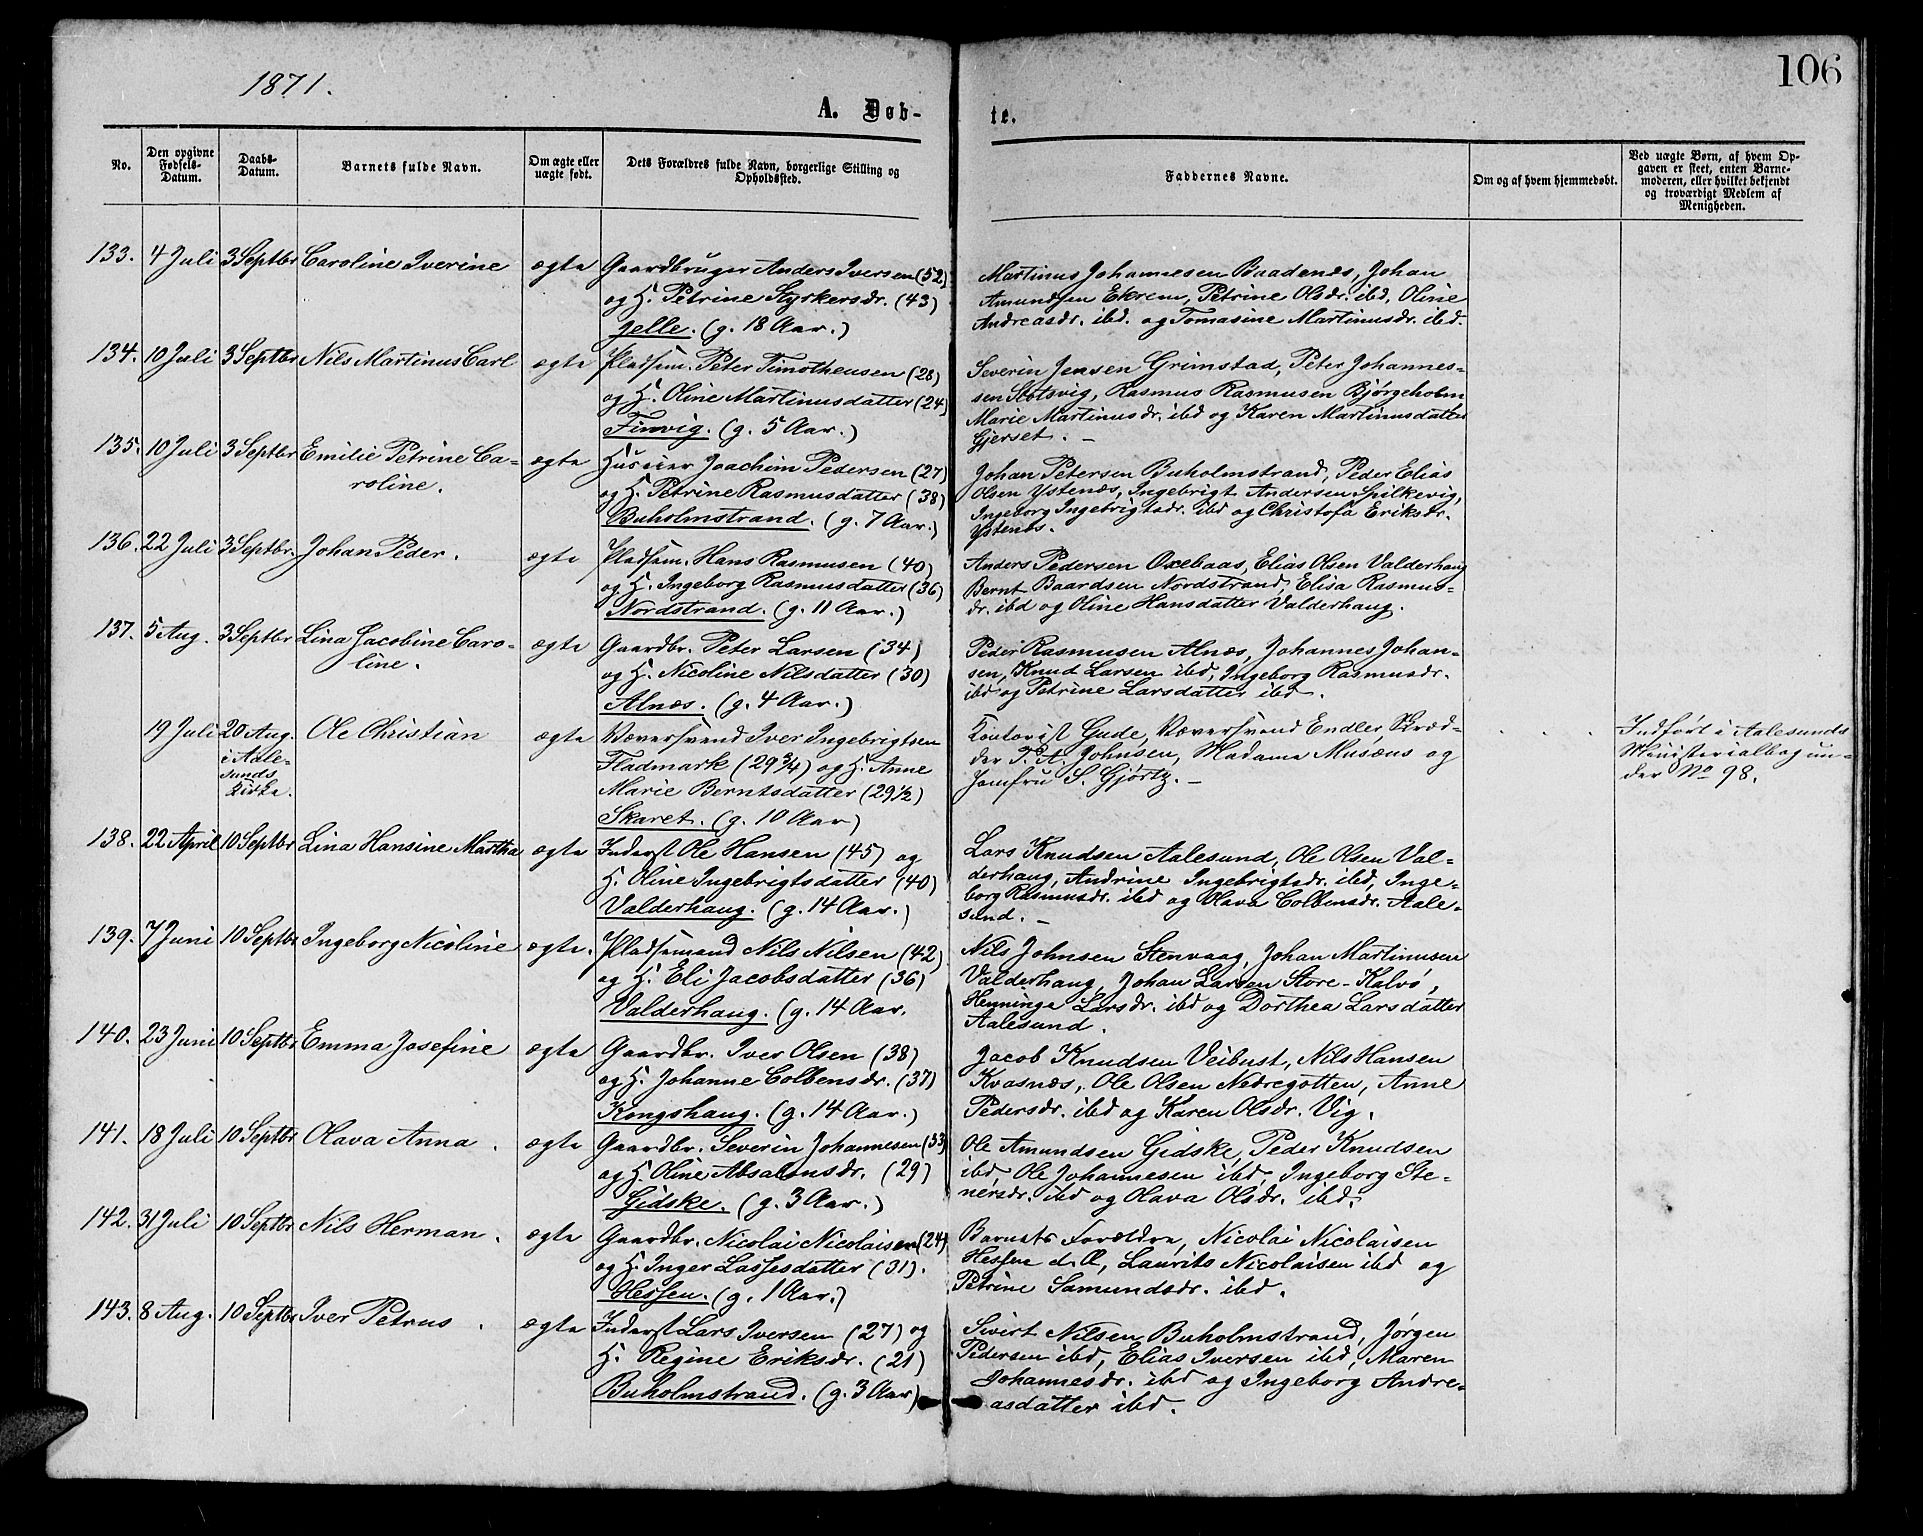 1871.
106
A. Døb-
te.
No.
Den opgivne Fødsels-Datum.
Daabs-Datum.
Barnets fulde Navn.
Om ægte eller uægte født.
Dets Forældres fulde Navn, borgerlige Stilling og Opholdssted.
Faddernes Navne.
Om og af hvem hjemmedøbt.
Ved uægte Børn, af hvem Op-
gaven er skeet, enten Barne-
moderen, eller hvilket bekjendt
og troværdigt Medlem af
Menigheden.
133. 4 Juli 3 Septbr Caroline Iverine ægte Gaardbruger Anders Iversen (52)
og H. Petrine Styrkersdr. (43)
Jelle. (g. 18 Aar.)
Martinus Johannesen Baadenæs, Johan
Amundsen Ekrem, Petrine Olsdr. ibd, Oline
Andreasdr. ibd. og Tomasine Martinusdr. ibd.
134. 10 Juli 3 Septbr Nils Martinus Carl ægte Pladsm. Peter Timotheusen (28)
og H. Oline Martinusdatter (24)
Finvig. (g. 5 Aar.)
Severin Jensen Grimstad, Peter Johannes-
sen Slotsvig, Rasmus Rasmusen Bjørgeholm
Marie Martinusdr. ibd og Karen Martinusdatter
Gjerset. -
135. 10 Juli 3 Septbr Emilie Petrine Ca-
roline. ægte Huseier Joachim Pedersen (27)
og H. Petrine Rasmusdatter (38)
Buholmstrand. (g. 7 Aar.)
Johan Petersen Buholmstrand, Peder Elias
Olsen Ystenæs, Ingebrigt Andersen Spilkevig,
Ingeborg Ingebrigtsdr. ibd og Christofa Eriksdr.
Ystenæs.
136. 22 Juli 3 Septbr. Johan Peder. ægte Pladsm. Hans Rasmusen (40)
og H. Ingeborg Rasmusdatter (36)
Nordstrand. (g. 11 Aar.)
Anders Pedersen Oxebaas, Elias Olsen Valderhaug
Bernt Baardsen Nordstrand, Elisa Rasmus-
dr. ibd og Oline Hansdatter Valderhaug.
137. 5 Aug. 3 Septbr Lina Jacobine Caro-
line. ægte Gaardbr. Peter Larsen (34)
og H. Nicoline Nilsdatter (30)
Alnæs. (g. 4 Aar.)
Peder Rasmusen Alnæs, Johannes Johan-
sen, Knud Larsen ibd, Ingeborg Rasmusdr.
ibd og Petrine Larsdatter ibd.
19 Juli 20 Aug.
i Aale-
sunds
Kirke. Ole Christian ægte Væversvend Iver Ingebrigtsen
Fladmark (29 3/4) og H. Anne
Marie Berntsdatter (29 1/2)
Skaret. (g. 10 Aar)
Kontorist Gude, Væversvend Endler, Skræd-
der P. A. Johnsen, Madame Musæus og
Jomfru S. Gjørtz. -
Indført i Aalesunds
Ministerialbog un-
der No 98.
138. 22 April 10 Septbr Lina Hansine Martha ægte Inderst Ole Hansen (45) og
H. Oline Ingebrigtsdatter (40)
Valderhaug. (g. 14 Aar.)
Lars Knudsen Aalesund, Ole Olsen Val-
derhaug, Andrine Ingebrigtsdr. ibd, Inge-
borg Rasmusdr. ibd og Olava Colbensdr. Aale-
sund. -
139. 7 Juni 10 Septbr Ingeborg Nicoline ægte. Pladsemand Nils Nilsen (42)
og H. Eli Jacobsdatter (36)
Valderhaug. (g. 14 Aar.
Nils Johnsen Stenvaag, Johan Martinusen
Valderhaug, Johan Larsen Store-Kalvø,
Henninge Larsdr. ibd og Dorthea Larsdatter
Aalesund.
140. 23 Juni 10 Septbr Emma Josefine ægte Gaardbr. Iver Olsen (38)
og H. Johanne Colbensdr. (37)
Kongshaug. (g. 14 Aar.)
Jacob Knudsen Veibust, Nils Hansen
Kvasnæs, Ole Olsen Nedregotten, Anne
Pedersdr. ibd og Karen Olsdr. Vig.
141. 18 Juli 10 Septbr Olava Anna. ægte Gaardbr. Severin Johannesen (33)
og H. Oline Absalonsdr. (29)
Gidske. (g. 3 Aar.)
Ole Amundsen Gidske, Peder Knudsen
ibd, Ole Johannesen ibd, Ingeborg Ste-
nersdr. ibd og Olava Olsdr. ibd.
142. 31 Juli 10 Septbr Nils Herman. ægte Gaardbr. Nicolai Nicolaisen (24)
og H. Inger Lassesdatter (31).
Hessen. (g. 1 Aar.)
Barnets Forældre, Nicolai Nicolaisen
Hessen d. Æ, Laurits Nicolaisen ibd og
Petrine Samundsdr. ibd.
143. 8 Aug. 10 Septbr Iver Petrus. ægte Inderst Lars Iversen (27) og
H. Regine Eriksdr. (21)
Buholmstrand. (g. 3 Aar)
Sivert Nilsen Buholmstrand, Jørgen
Pedersen ibd, Elias Iversen ibd, Maren
Johannesdr. ibd og Ingeborg Andre-
asdatter ibd.